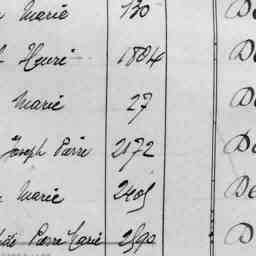 Marie 130 De
Henri 1884 De
Marie 27 De
Joseph Pierre 2172 De
Marie 2405 De
Pierre Marie 2590 D